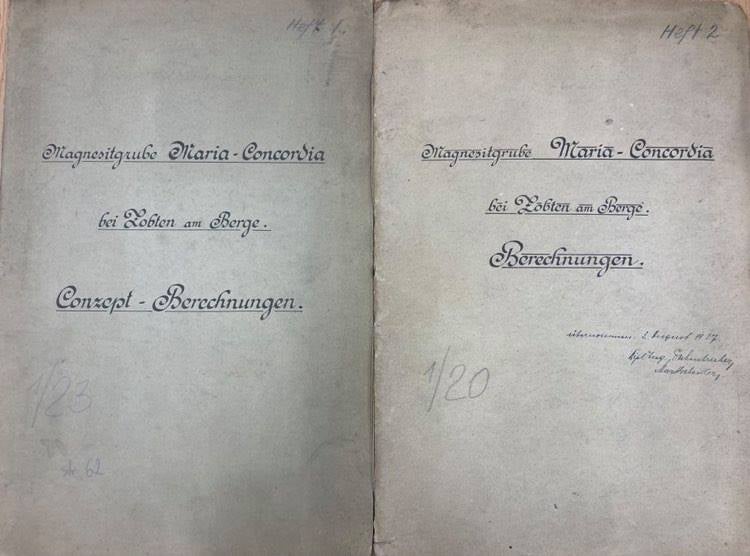 Heft 1.
Magnesitgrube Maria-Concordia
bei Zobten am Berge.
Conzept - Berechnungen.
1/23
62
Heft 2
Magnesitgrube Maria-Concordia
bei Zobten am Berge.
Berechnungen.
übernommen. 2 August
Dipl Ing.
Markscheider
1/20